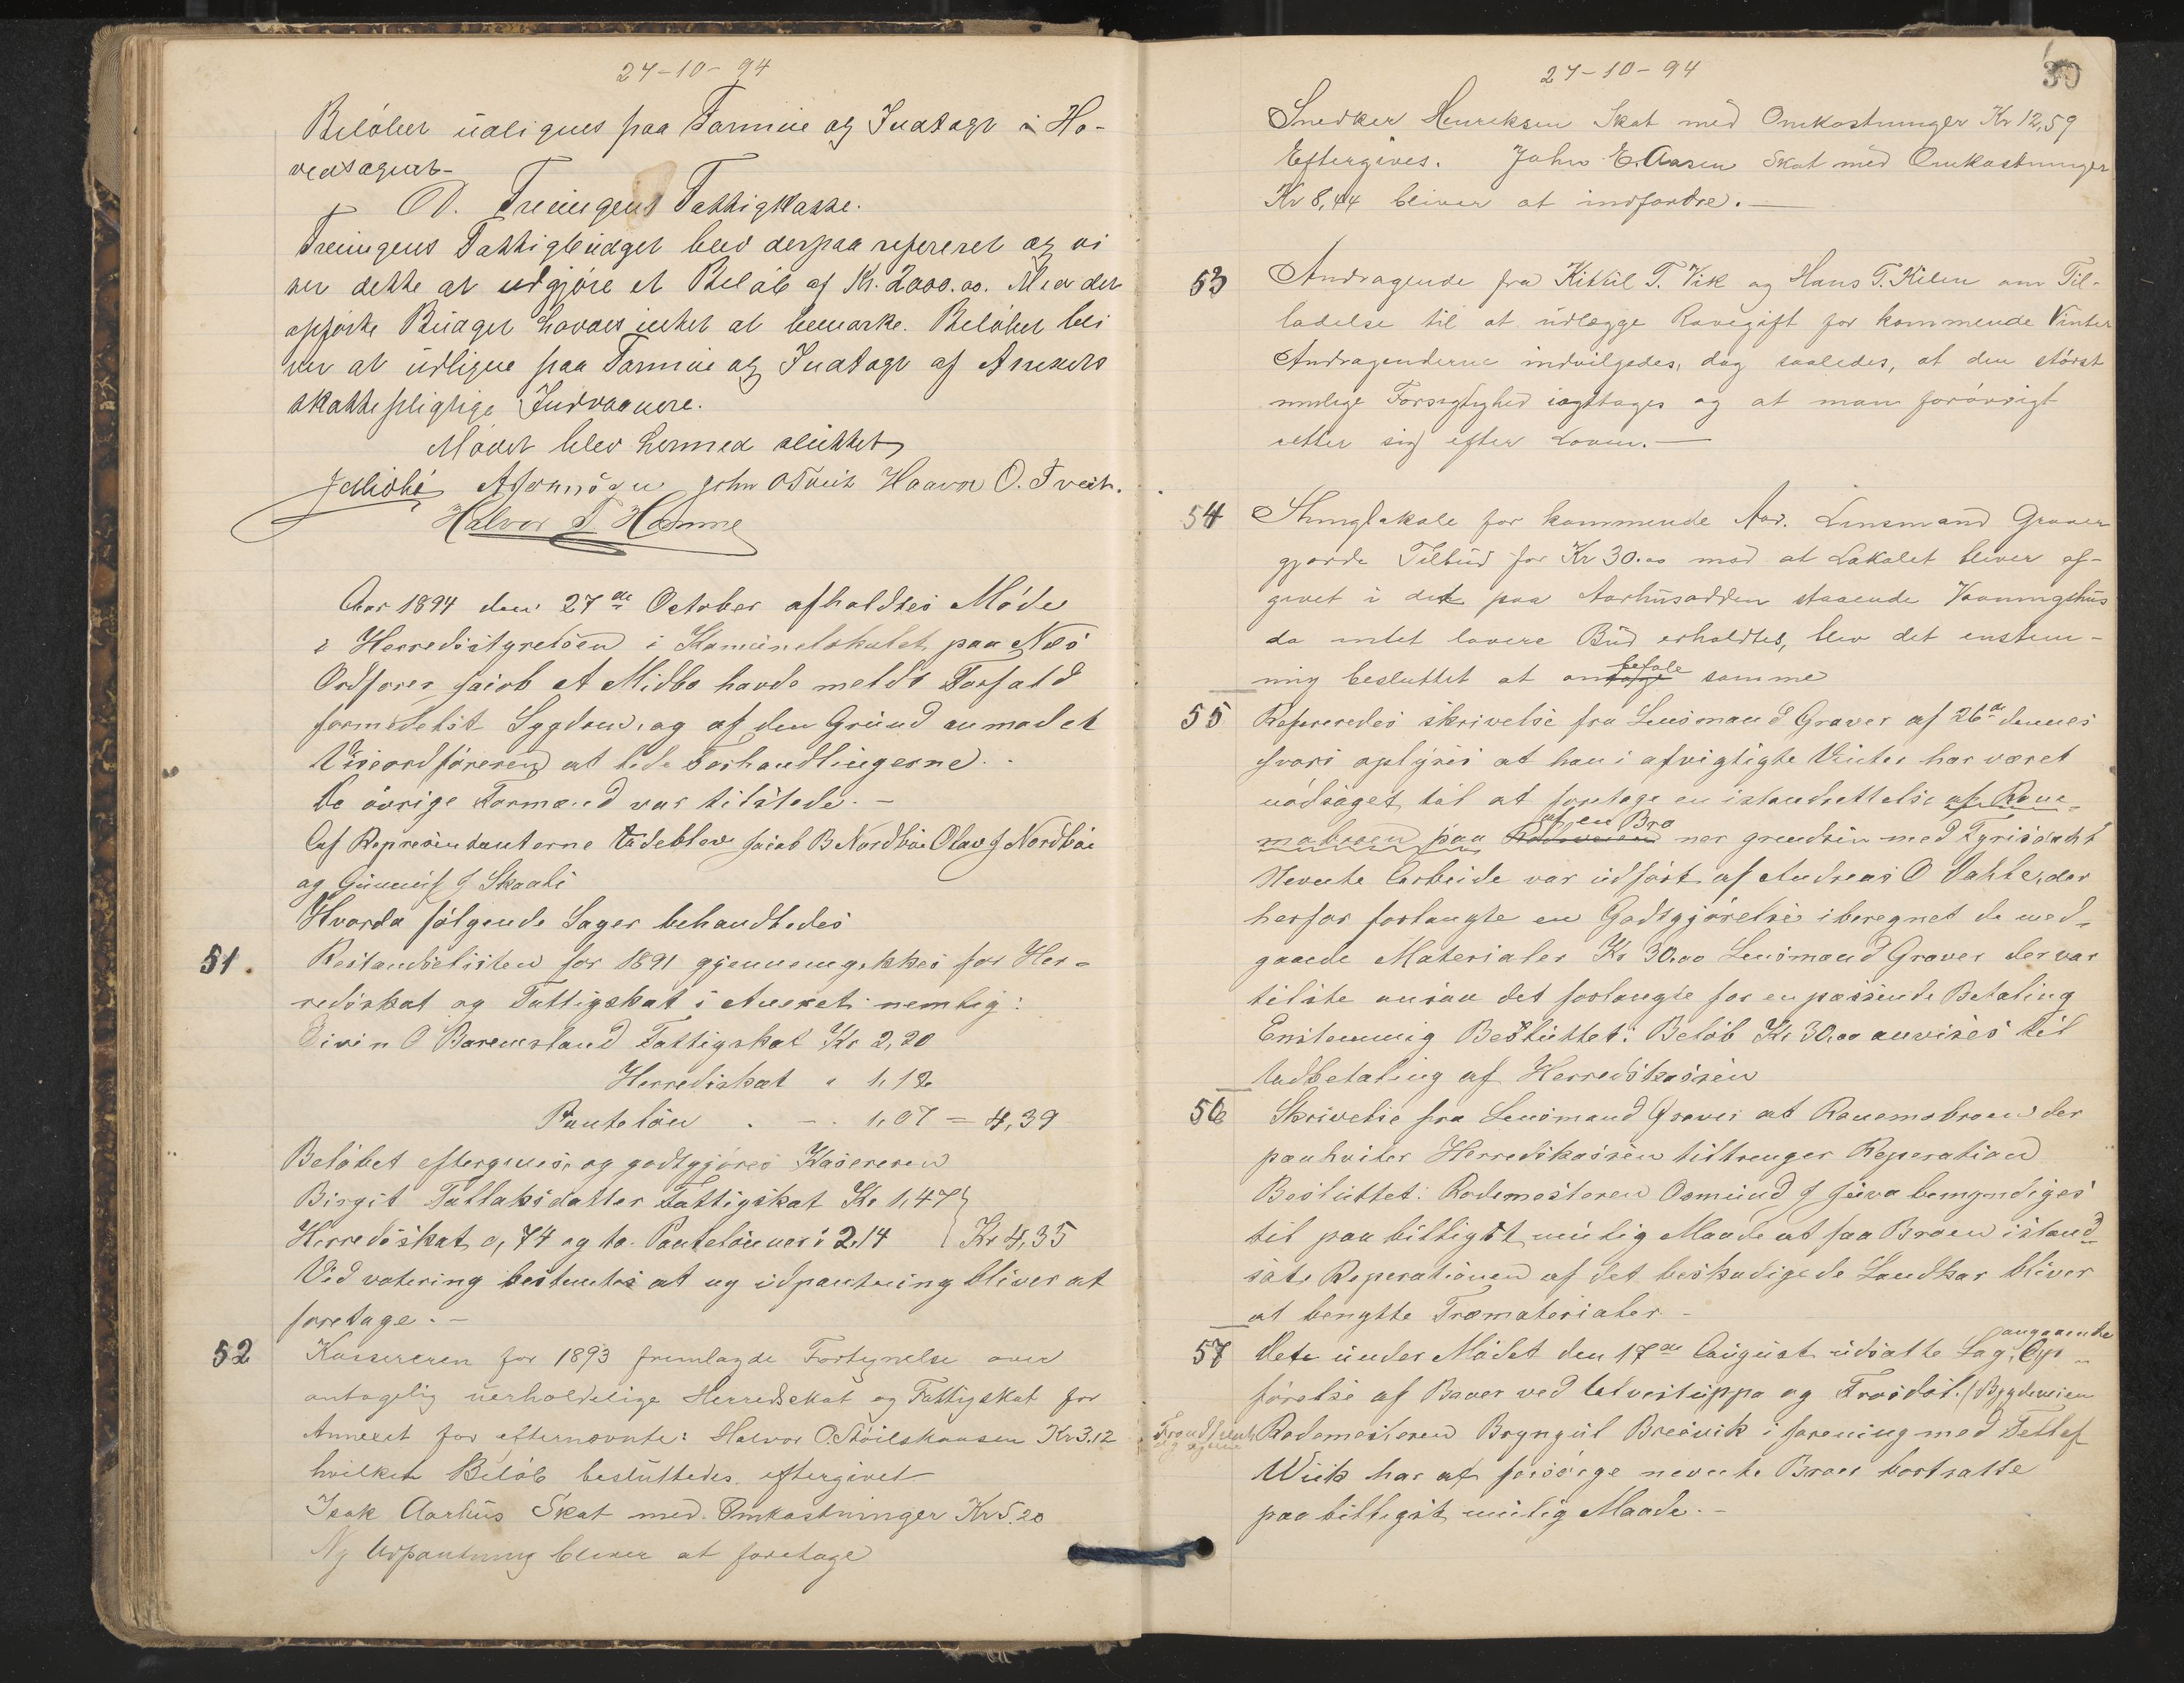 27-10-94
Beløbet udlignes paa Formue og Indtægt i Ho-
vedsognet-
D. Treungens Fattigkasse.
Treungens Fattigbudget blev derpaa refereret og vi
ser dette at udgjøre et Beløb af Kr. 2000.00. Mod det
opførte Budget havdes intet at bemærke. Beløbet bli
ver at udligne paa Formue og Indtægt af Anexets
skattepligtige Indvaanere.
Mødet blev hermed sluttet
JAMidbø John O Tveit Haavor O. Tveit.
Halvor T. Homme
Aar 1894 den 27de October afholdtes Møde
i Herredsstyrelsen i Kamunelokalet paa Næs
Ordfører Jacob A Midbø havde meldt Forfald
formedelst Sygdom, og af den Grund anmodet
Viseordføreren at lede Forhandlingerne.
De øvrige Formænd var tilstede.-
Af Representanterne udeblev Jacob B Nordbøe Olav J Nordbøe
og Gunnuf J Skaali
Hvorda følgende Sager behandledes
51. Restanselisten for 1891 gjennemgikkes for Her=
redsskat og Fattigskat i Anexet nemlig:
Eivin O Baremsland Fattigskat Kr 2,20
Herredskat " 1,12
Panteløn . - . 1,07 = 4,39
Beløbet eftergives og godtgjøres Kasereren
Birgit Tallaksdatter Fattigskat Kr 1,47
Herredsskat 0,74 og to Pantelønner 2,14 } Kr 4,35
Ved votering bestemtes at ny udpantning bliver at
foretage.-
52 Kassereren for 1893 fremlagde Fortegnelse over
antagelig uerholdelige Herredsskat og Fattigskat for
Annexet for efternævnte: Halvor O. Stöilskausen Kr 3.12
hvilket Beløb besluttedes eftergivet
Isak Aarhus Skat med Omkostninger Kr 5.20
Ny Udpantning bliver at foretage
27-10-94
30
Snedker Henriksen Skat med Omkostninger Kr 12,59
Eftergives. John E. Aasen Skat med Omkostninger
Kr 8,44 bliver at indfordre.-
53 Andragende fra Kittil T. Vik og Hans T. Kilen om Til-
ladelse til at udlægge Rævegift for kommende Vinter
Andragenderne indvilgedes, dog saaledes, at den störst
mulige Forsigtighed iagttages og at man forövrigt
retter sig efter Loven.-
54 Thinglokale for kommende Aar. Lensmand Graver
gjorde Tilbud for Kr 30.00 mod at Lokalet bliver af-
givet i det paa Aarhusodden staaende Vaaningshus
da intet lavere Bud erholdtes, blev det enstem-
mig besluttet at anbefale samme
55 Refereredes skrivelse fra Lensmand Graver af 26de dennes
hvori oplyses at han i afvigtigte Vinter har været
nødsaget til at foretage en istandsettelse af Rane-
mabroen paa af en Bro nær grendsen med Fyrisdahl
Nevnte Arbeide var udført af Andreas O Dahle, der
herfor forlangte en Godtgjørelse iberegnet de med-
gaaede Materialer Kr 30.00 Lensmand Graver der var
tilste ansaa det forlangte for en passende Betaling
Enstemmig Besluttet: Beløb Kr 30.00 anvises til
Udbetaling af Herredskassen
56 Skrivelse fra Lensmand Graver at Ranemobroen der
paahviler Herredskassen tiltrenger Reperation
Besluttet: Rodemesteren Osmund J Juva bemyndiges
til paa billigst mulig Maade at faa Broen istand
sate Reperationen af det beskadigede Landkar bliver
at benytte Træmaterialer-
57 Dete under Mødet den 17de August udsatte Sag, angaaende Op-
førelse af Broer ved Ulvestuppa og Frosdøl. (Bygdeveien
Rodemesteren Brynjul Breivik i forening med Tellef
Wiik har at forsørge nevnte Broer bortsatte
paa billigst mulig Maade.-